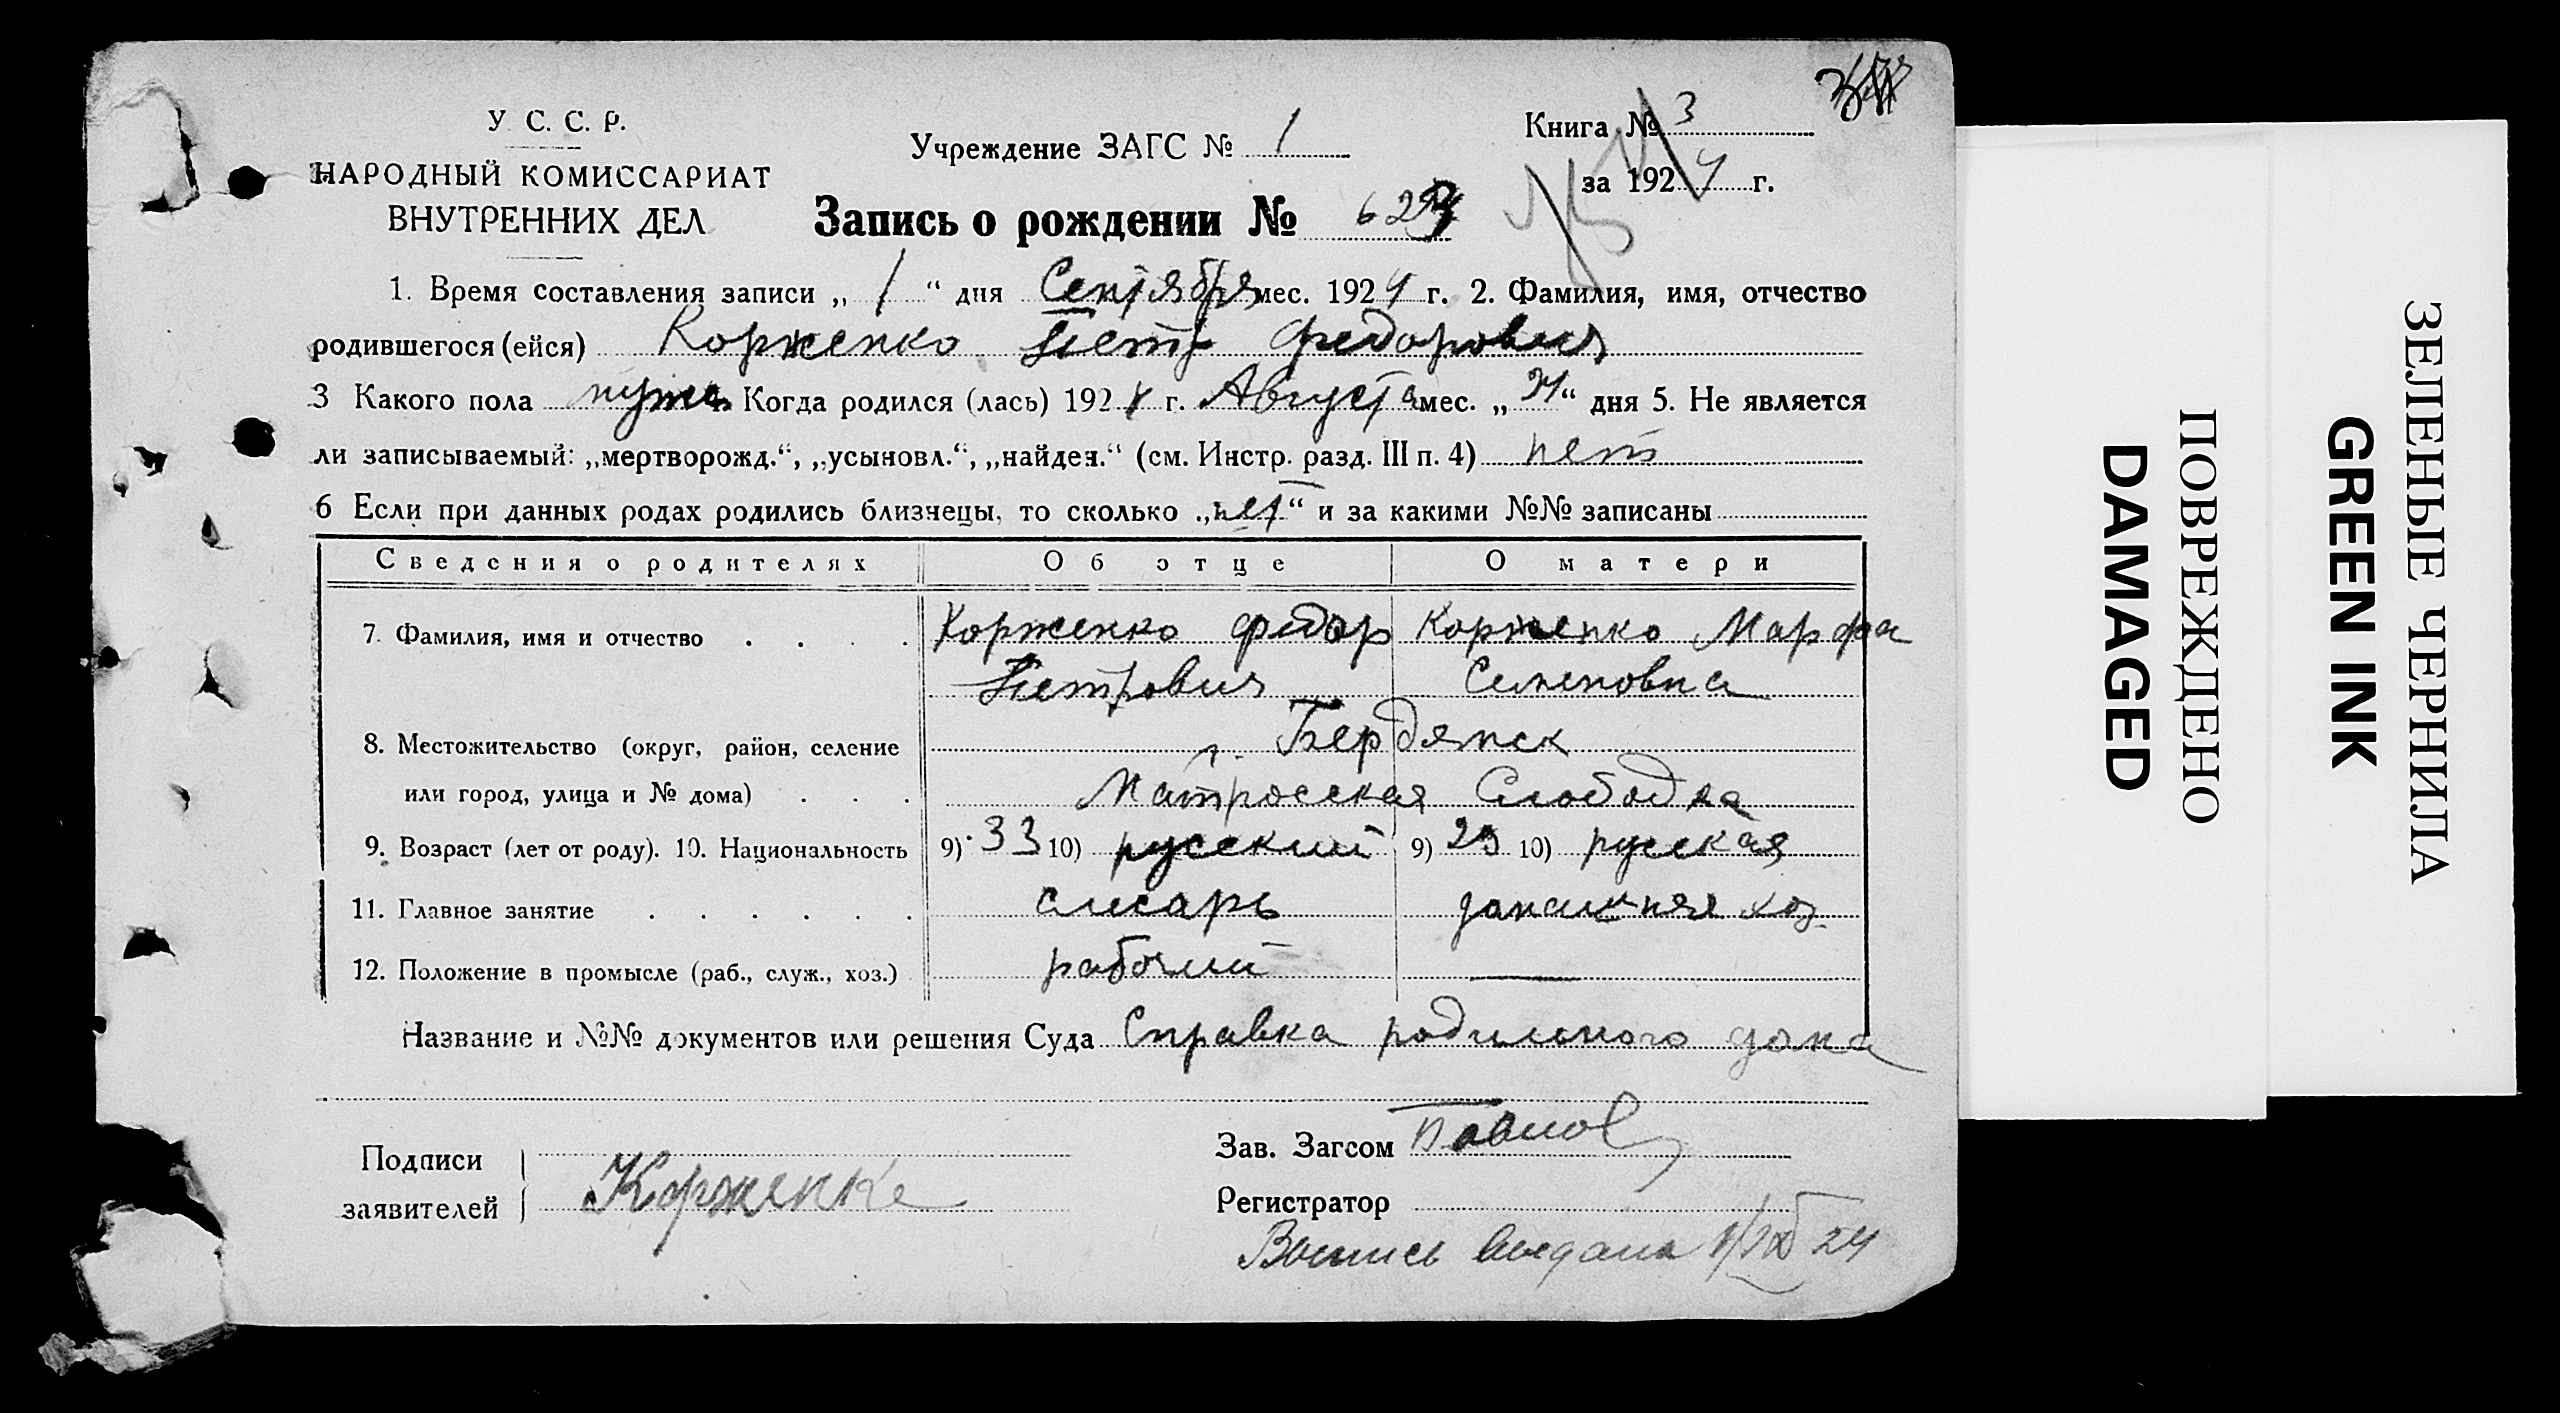 У. С. С. Р.
НАРОДНЫЙ КОМИССАРИАТ
ВНУТРЕННИХ ДЕЛ
Учреждение ЗАГС № 1
Книга № 3
за 1924 г.
Запись о рождении № 62
1. Время составления записи „ 1 “ дня Сентября мес. 1924 г. 2. Фамилия, имя, отчество
родившегося (ейся) Корженко Петр Федорович
3 Какого пола муж. Когда родился (лась) 1924 г. Августа мес. „ “ дня 5. Не является
ли записываемый: „мертворожд.“, „усыновл.“, „найден.“ (см. Инстр. разд. III п. 4) нет
6 Если при данных родах родились близнецы, то сколько „нет“ и за какими №№ записаны
Сведения о родителях Об отце О матери
7. Фамилия, имя и отчество Корженко Федор Корженко Марфа
Петрович Семеновна
8. Местожительство (округ, район, селение г. Бердянск
или город, улица и № дома) Матросская Слободка
9. Возраст (лет от роду). 10. Национальность 9) 33 10) русский 9) 29 10) русская
11. Главное занятие слесарь домашняя хоз.
12. Положение в промысле (раб., служ., хоз.) рабочий —
Название и №№ документов или решения Суда Справка родильного дома
Подписи
заявителей Корженко
Зав. Загсом Павлов
Регистратор
Выпись выдана 1/IX 24
ПОВРЕЖДЕНО
DAMAGED
ЗЕЛЕНЫЕ ЧЕРНИЛА
GREEN INK